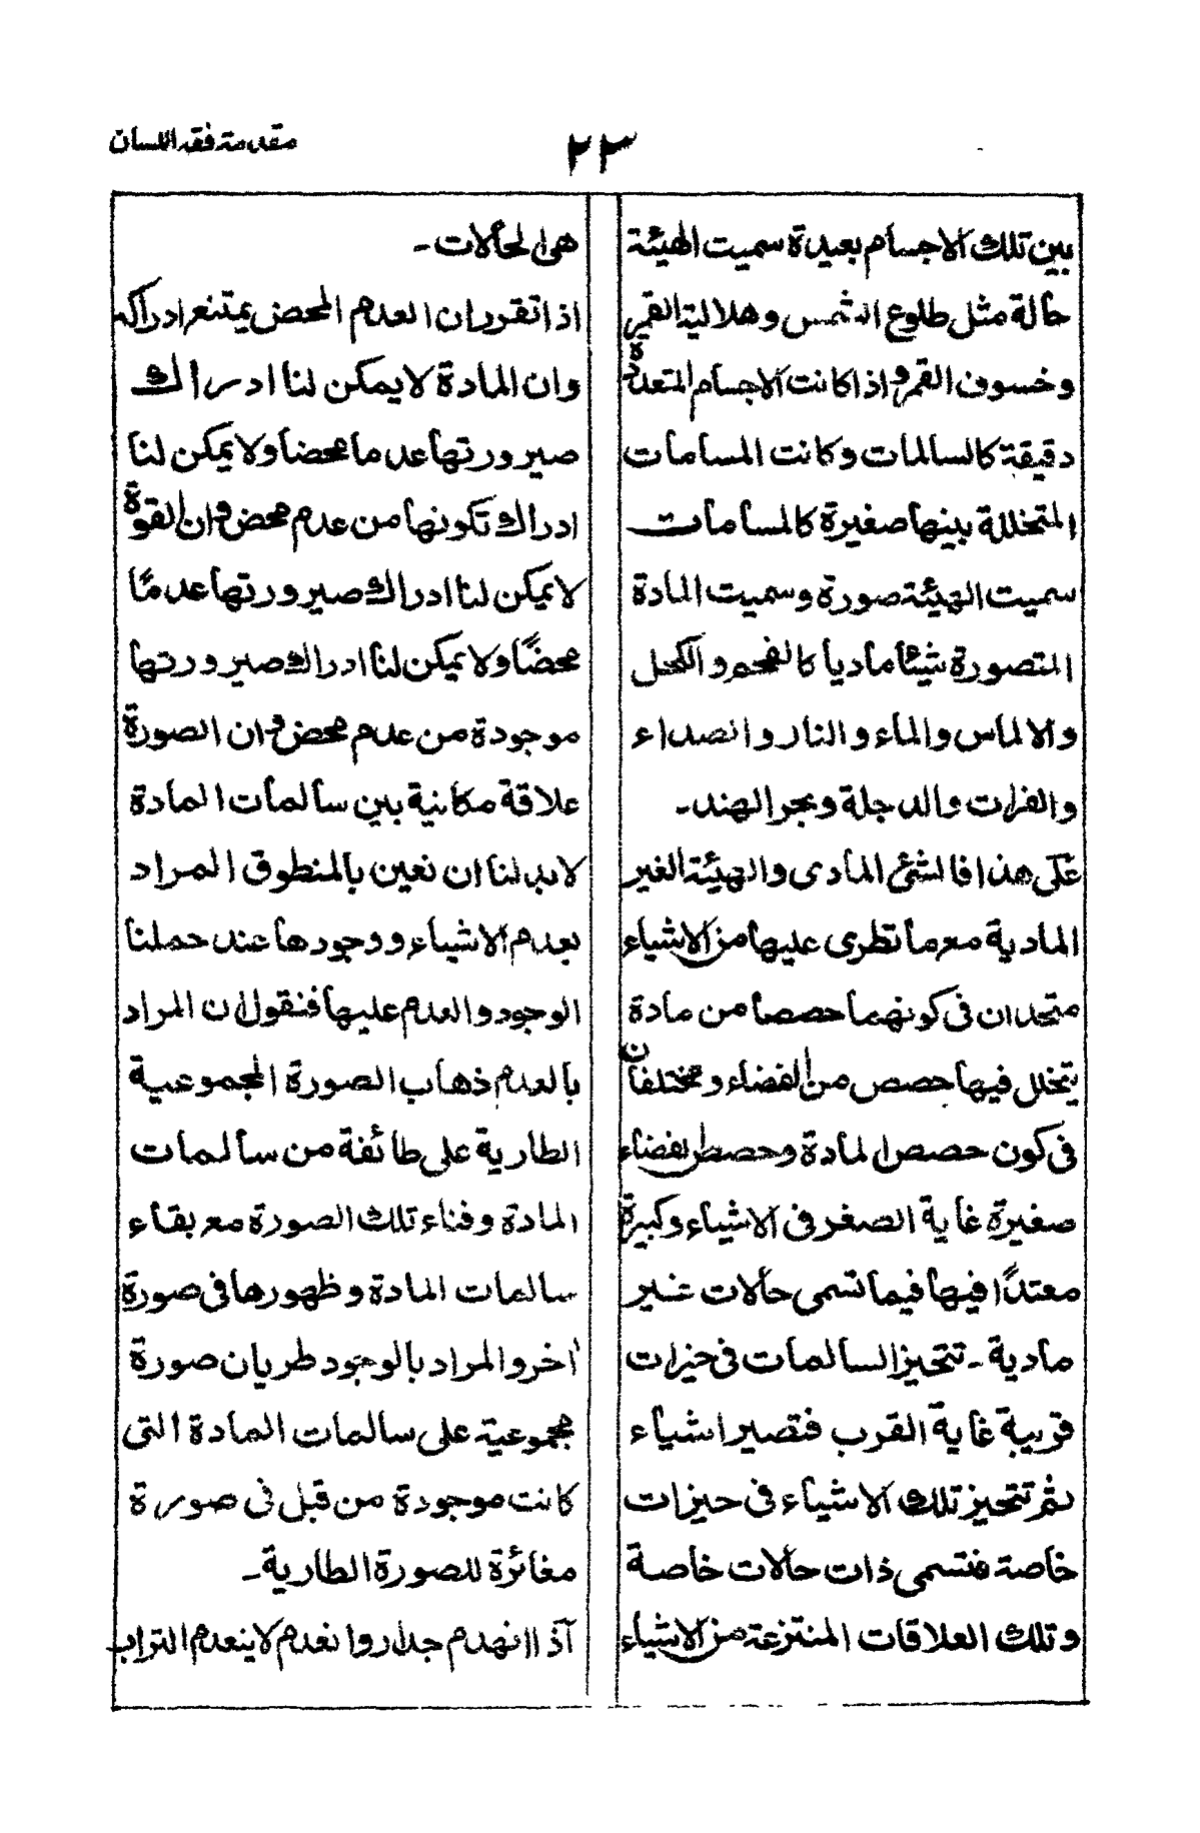 مقدمة فقه اللسان
٢٣
بين تلك الاجسام بعيدة سميت الهيئة
حالة مثل طلوع الشمس وهلالية القمر
وخسوف القمر واذا كانت الاجسام المتعددة
دقيقة كالسالمات وكانت المسامات
المتخللة بينها صغيرة كالمسامات
سميت الهيئة صورة وسميت المادة
المتصورة شيئا ماديا كالفحم والكحل
والالماس والماء والنار والصداء
والفرات والدجلة وبحر الهند۔
على هذا فالشئ المادى والهيئة الغير
المادية معرما تطرى عليها من الاشياء
متحدان فى كونهما حصصا من مادة
يتخلل فيها حصص من الفضاء ومختلفان
فى كون حصص المادة وحصص الفضاء
صغيرة غاية الصغر فى الاشياء وكبيرة
معتدًا فيها فيما تسمى حالات غير
مادية ۔ تتحيز السالمات فى حيزات
قريبة غاية القرب فتصير اشياء
ثم تتحيز تلك الاشياء فى حيزات
خاصة فتسمى ذات حالات خاصة
وتلك العلاقات المنتزعة من الاشياء
هى الحالات ۔
اذا تقرر ان العدم المحض يمتنع ادراكه
وان المادة لا يمكن لنا ادراك
صيرورتها عدما محضا ولا يمكن لنا
ادراك تكونها من عدم محض وان القوة
لا يمكن لنا ادراك صيرورتها عدمًا
محضًا ولا يمكن لنا ادراك صيرورتها
موجودة من عدم محض وان الصورة
علاقة مكانية بين سالمات المادة
لابد لنا ان نعين بالمنطوق المراد
بعدم الاشياء ووجودها عند حملنا
الوجود والعدم عليها فنقول ان المراد
بالعدم ذهاب الصورة المجموعية
الطارية على طائفة من سالمات
المادة وفناء تلك الصورة مع بقاء
سالمات المادة وظهورها فى صورة
اخر والمراد بالوجود طريان صورة
مجموعية على سالمات المادة التى
كانت موجودة من قبل فى صورة
مغائرة للصورة الطارية۔
آذا انهدم جدار وانعدم لا ينعدم التراب